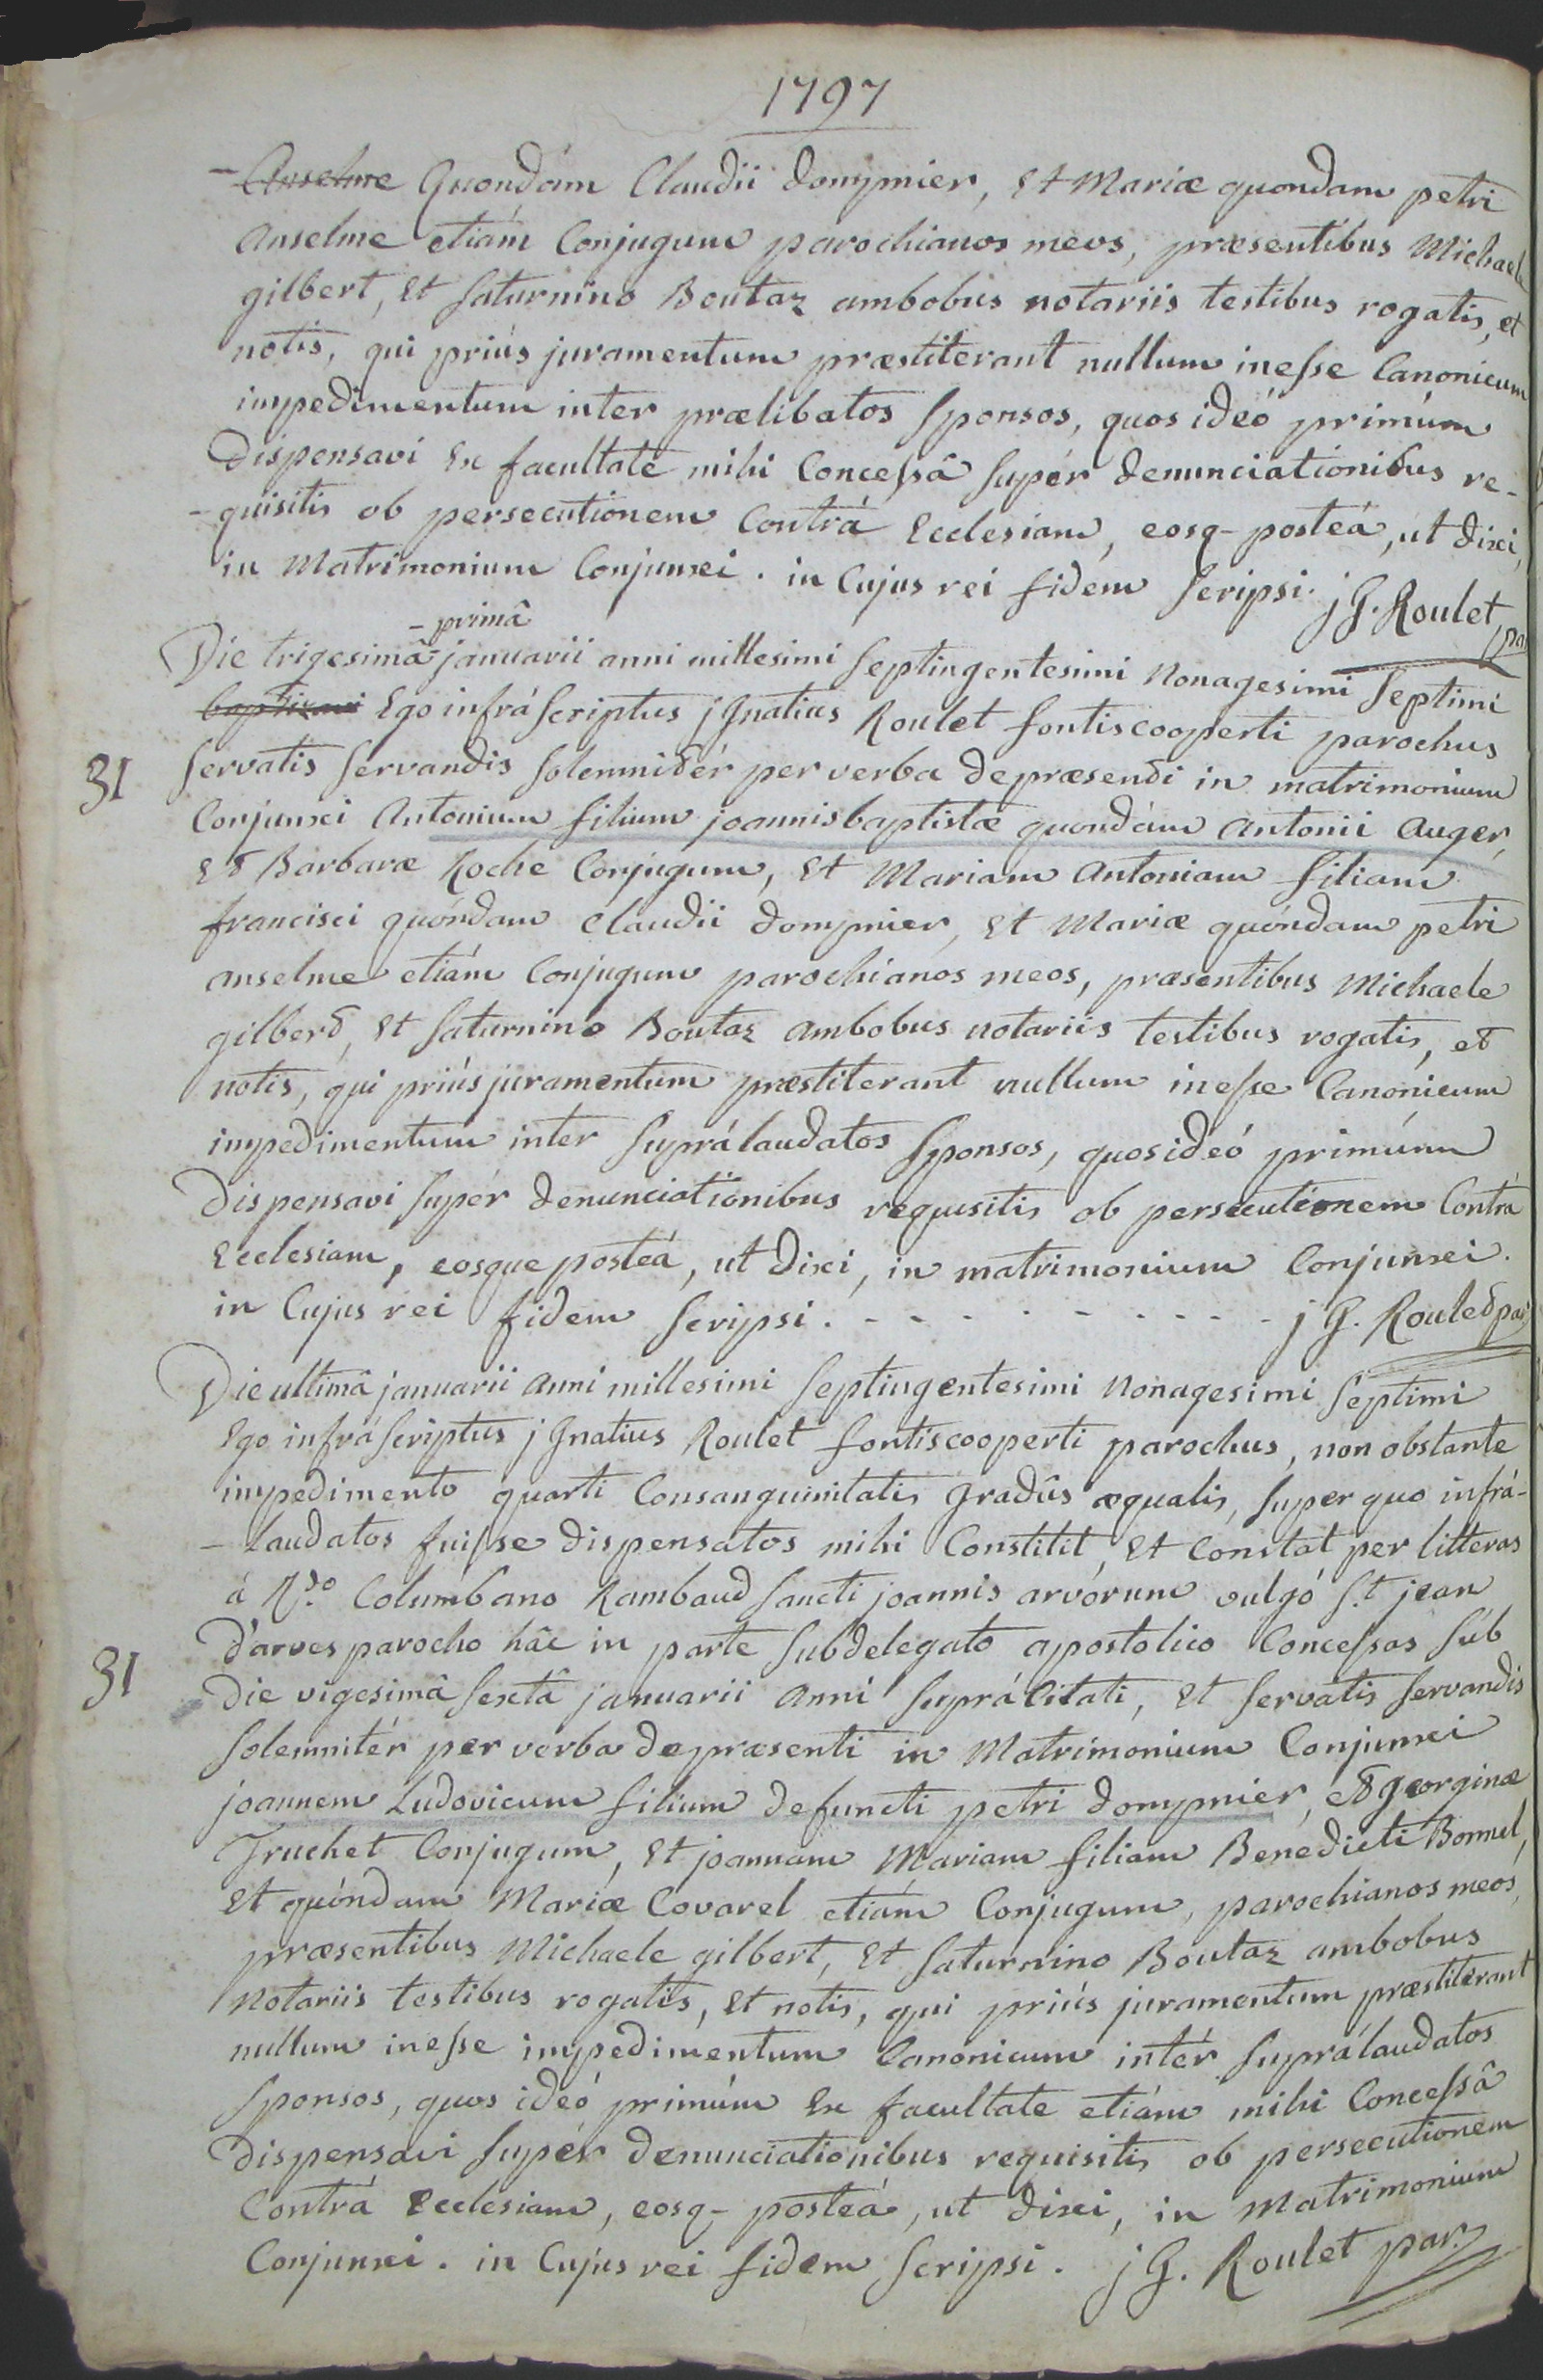 1797
- Anselme Quondám Claudii dompnier, Et Mariæ quondam petri
Anselme etiám Conjugum parochianos meos, præsentibus Michaele
gilbert, Et Saturnino Boutaz ambobus notariis testibus rogatis, et
notis, qui priús juramentum præstiterant nullum inesse Canonicum
impedimentum inter prælibatos Sponsos, quos ideó primúm
Dispensavi Ex facultate mihi Concessâ Supér denunciationibus re-
-quisitis ob persecutionem Contrá Ecclesiam, eosq- posteá, ut dixi,
in Matrimonium Conjunxi. in Cujus rei fidem Scripsi. jG. Roulet par
- primâ
Die trigesimâ januarii anni millesimi Septingentesimi Nonagesimi Septimi
baptizavi Ego infráScriptus jGnatius Roulet fontiscooperti parochus
31
Servatis Servandis Solemnitér per verba depræsenti in matrimonium
Conjunxi Antonium filium joannisbaptistæ quondám Antonii Auger,
Et Barbaræ Roche Conjugum, Et Mariam Antoniam filiam
francisci quóndam Claudii dompnier, Et Mariæ quóndam petri
anselme etiám Conjugum parochianos meos, præsentibus Michaele
gilbert, Et Saturnino Boutaz ambobus notariis testibus rogatis, et
notis, qui priús juramentum præstiterant nullum inesse Canonicum
impedimentum inter Suprálaudatos Sponsos, quos ideó primúm
Dispensavi Supér denunciationibus requisitis ob persecutionem Contrá
Ecclesiam, eosque posteá, ut dixi, in matrimonium Conjunxi.
in Cujus rei fidem Scripsi. - - - - - - - - - jG. Roulet par
Die ultimâ januarii Anni millesimi Septingentesimi Nonagesimi Septimi
Ego infráScriptus jGnatius Roulet fontiscooperti parochus, non obstante
impedimento quarti Consanguinitatis Gradûs æqualis, Super quo infrá-
- laudatos fuisse dispensatos mihi Constitit, Et Constat per litteras
á Rdo Columbano Rambaud Sancti joannis arvórum vulgó St jean
31
d'arves parocho hâc in parte Subdelegato apostolico Concessas Súb
die vigesimâ Sextâ januarii Anni SupráCitati, Et Servatis Servandis
Solemnitér per verba depræsenti in Matrimonium Conjunxi
joannem Ludovicum filium defuncti petri dompnier, et georginæ
Truchet Conjugum, Et joannam Mariam filiam Benedicti Bonnel,
Et quóndam Mariæ Covarel etiám Conjugum, parochianos meos,
præsentibus Michaele gilbert, Et Saturnino Boutaz ambobus
Notariis testibus rogatis, Et notis, qui priús juramentum præstiterant
nullum inesse impedimentum Canonicum intér Suprálaudatos
Sponsos, quos ideó primúm Ex facultate etiám mihi Concessâ
Dispensavi Supér denunciationibus requisitis ob persecutionem
Contrá Ecclesiam, eosq- posteá, ut dixi, in Matrimonium
Conjunxi. in Cujus rei fidem Scripsi. jG. Roulet par.